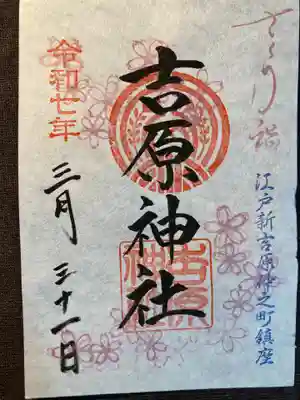 江戸新吉原仲之町鎮座
吉原神社
吉原
神社
令和七年
三月三十一日